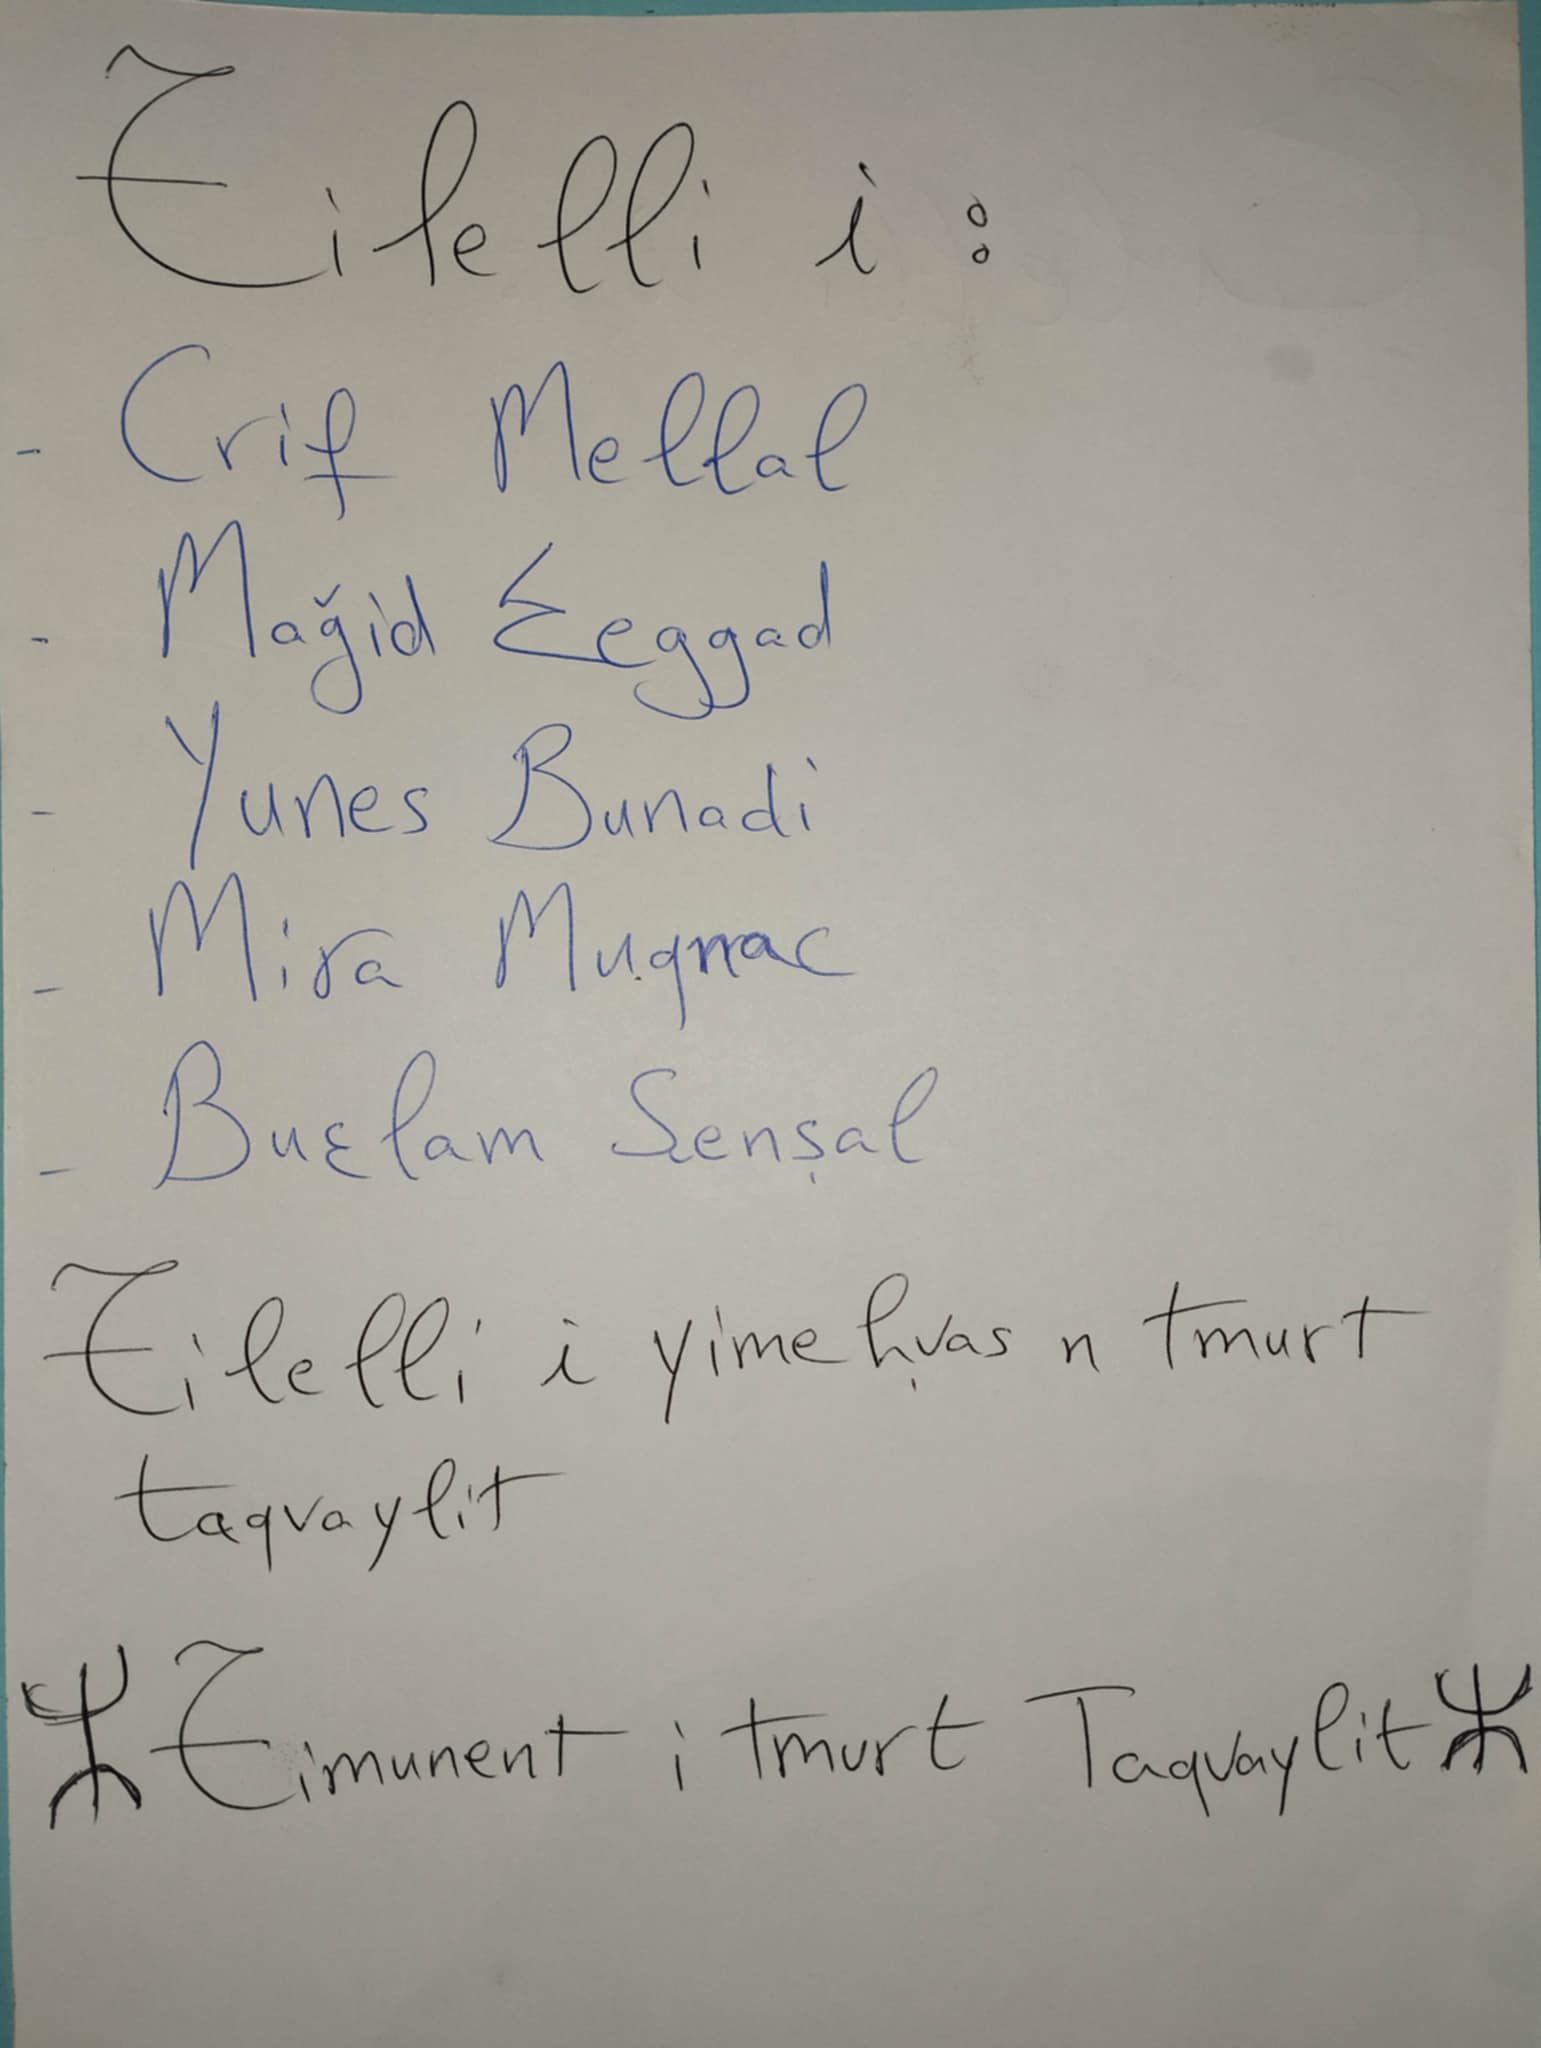 Tilelli i :
- Crif Mellal
- Maǧid Ɛeggad
- Yunes Bunadi
- Mira Muqnac
- Buɛlam Senṣal
Tilelli i yimeḥvas n tmurt
taqvaylit
ⵣ Timunent i tmurt Taqvaylit ⵣ